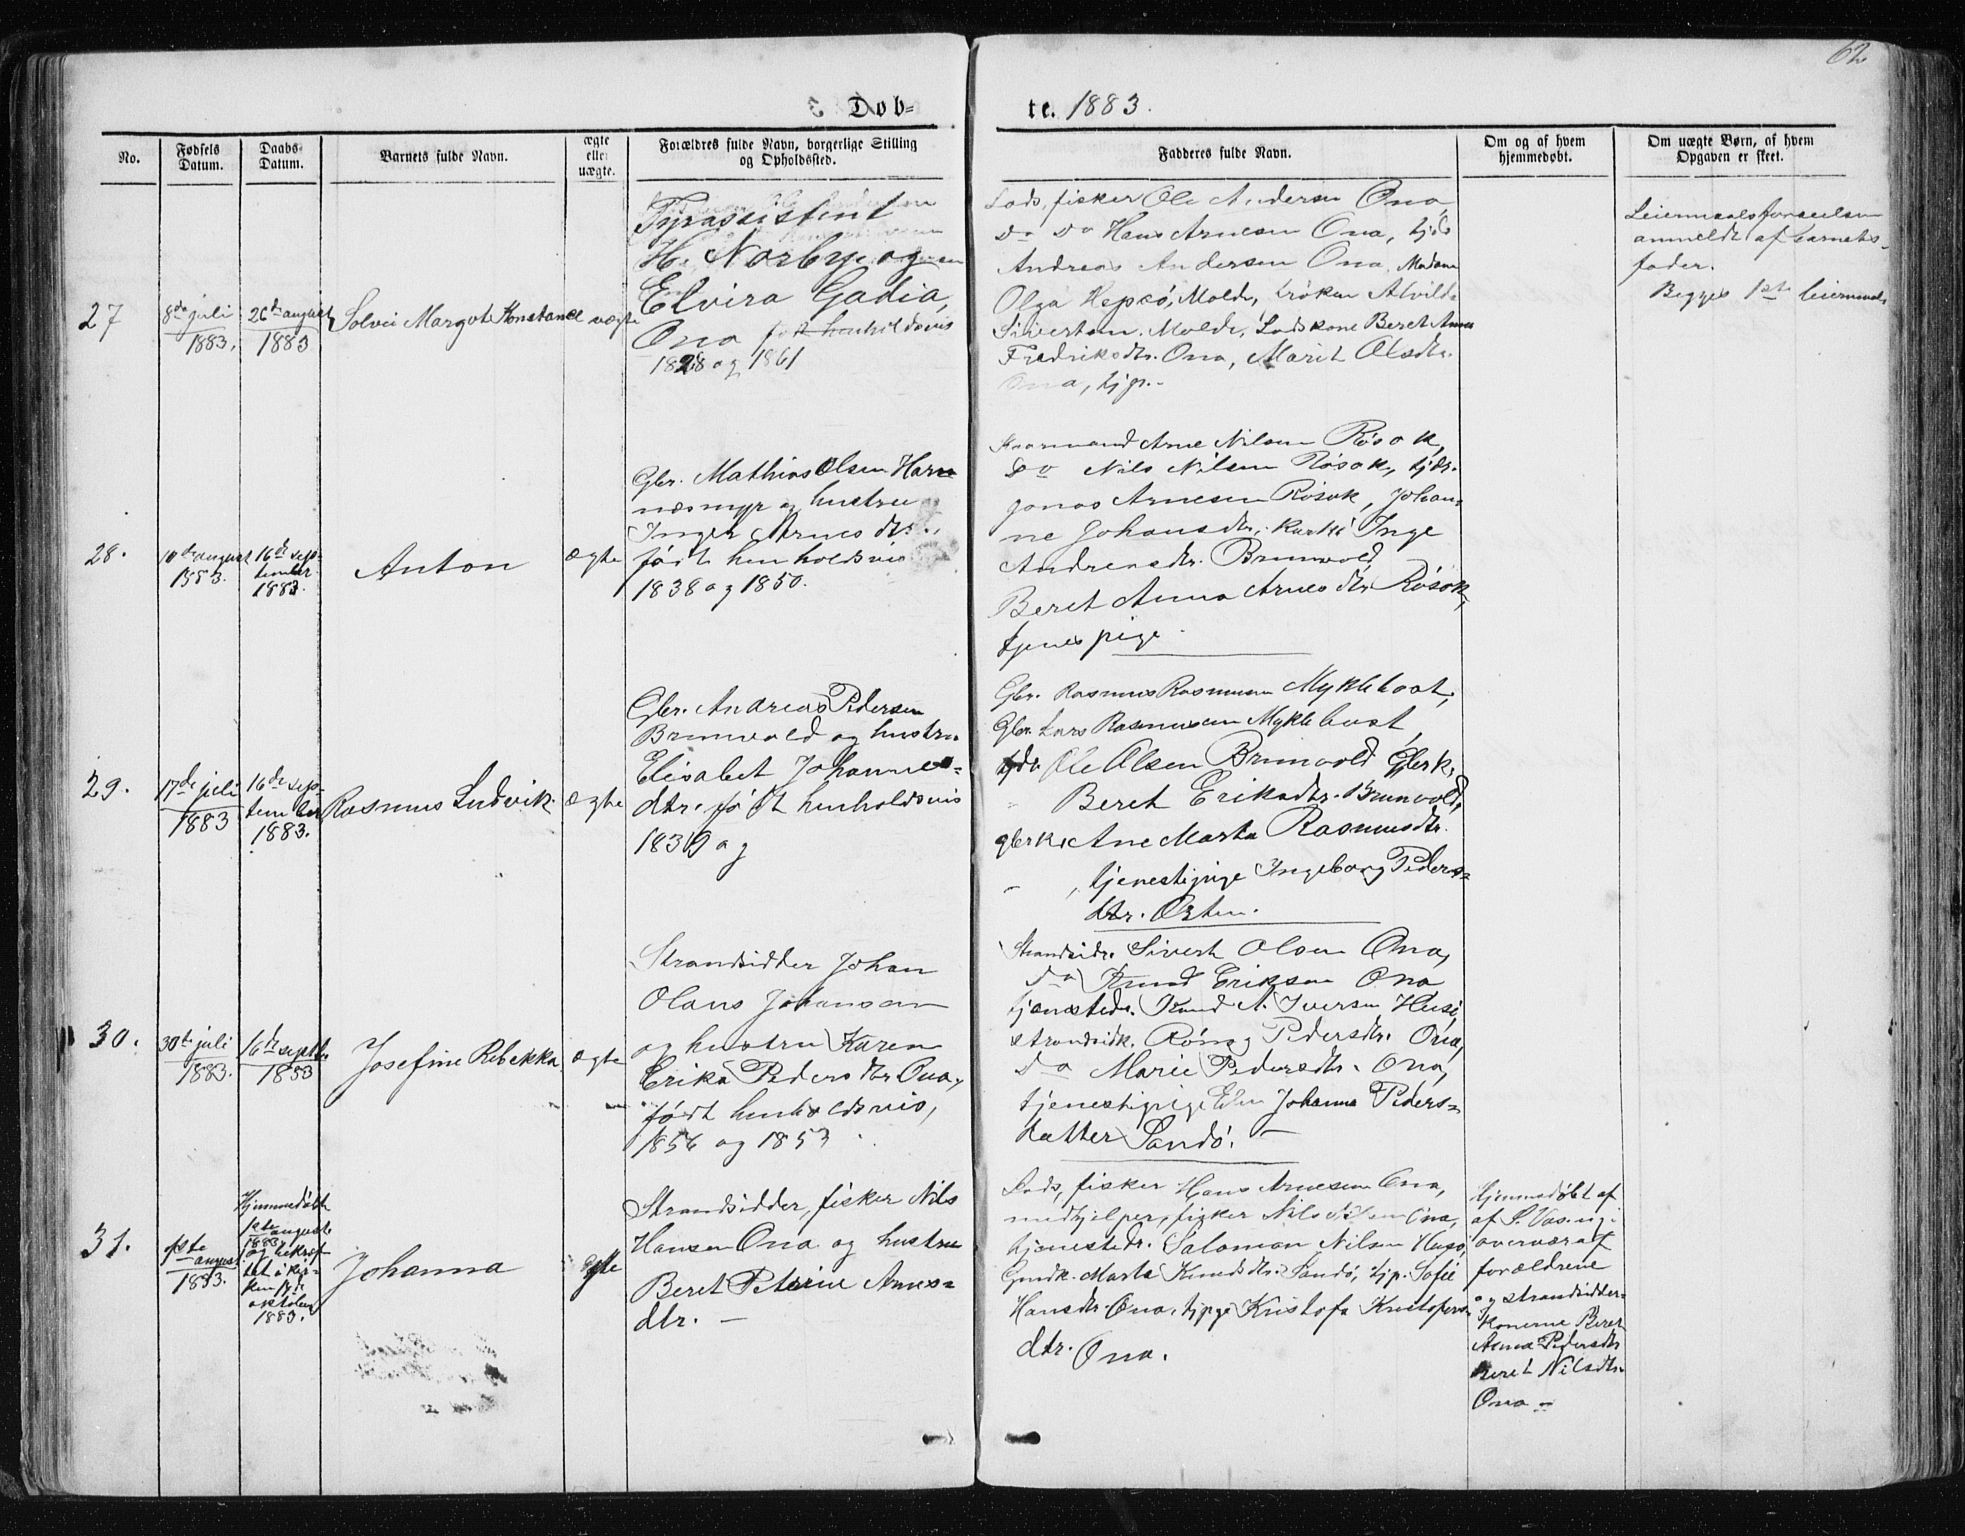 62
Døb-
te. 1883.
No.
Fødsels Datum.
Daabs-Datum.
Barnets fulde Navn.
ægte eller uægte.
Forældres fulde Navn, borgerlige Stilling og Opholdssted.
Fadderes fulde Navn.
Om og af hvem hjemmedøbt.
Om uægte Børn, af hvem Opgaven er skeet.
27
8de juli
1883.
26de august
1883
Solvei Margote Konstance
uægte
Fyrassistent
H. Norbye og
Elvira Gadia,
Ona født henholdsvis
1828 og 1861
Lods, fisker Ole Andersen Ona,
do do Hans Arnesen Ona, tjdr
Andreas Andersen Ona, Madam
Olga Hepsø, Molde, frøken Alvilde
Sivertsen, Molde, Lodskone Beret Anna
Fredriksdtr. Ona, Marit Olsdtr.
Ona, tjp.-
Leiermaalsforseelsen
anmeldt af barnets
fader.
Begges 1ste leiermaal
28.
10de august
1883.
16de sep-
tember
1883.
Anton
ægte
Gbr. Mathias Olsen Harn
næsmyr og hustru
Inger Arnesdtr.
født henholdsvis
1838 og 1850.
Gaarmand Arne Nilsen Røsok,
do Nils Nilsen Røsok, tjdr.
Jonas Arnesen Røsok, Johan-
ne Johansdtr. Inge
Andreasdtr. Brunvold
Beret Anna Arnesdtr Røsok,
tjenespige.
29.
17de juli
1883
16de sep-
tember
1883.
Rasmus Ludvik
ægte
Gbr. Andreas Pedersen
Brunvold og hustru
Elisabet Johannes-
dtr. født henholdsvis
1839 og
Gbr. Rasmus Rasmusen Myklebost,
Gbr. Lars Rasmussen Myklebust,
Ole Olsen Brunvold Gbrk.
Beret Eriksdtr. Brunvold,
gbrk. Ane Marta Rasmusdtr.
" , tjenestpige Ingeborg Peders-
dtr. Orten.
30.
30te juli
1883.
16de septbr
1883
Josefine Rebekka
ægte
Strandsidder Johan
Olaus Johansen
og hustru Karen
Erika Pedersdtr Ona,
født henholdsvis,
1856 og 1853
Strandsidr. Sivert Olsen Ona,
do Knud Eriksen Ona
tjenestedr. Knud A. Iversen Husø
strandsidk. Rønog Pedersdtr. Ona,
do Marie Pedersdtr. Ona,
tjenestpige Elen Johanna Peders-
datter Sandø. -
31.
1ste
august
1883.
Hjemmedøbt
1ste august
1883,
og bekræf-
tet i kir-
ken 7de
oktober
1883.
Johanna
ægte
Strandsidder, fisker Nils
Hansen Ona og hustru
Beret Peterine Arnes-
dtr. -
Lods, fisker Hans Arnesen Ona,
medhjelper, fisker Nils Nilsen Ona,
tjenestedr. Salomon Nilsen Husø,
Gmdk. Marta Knudsdtr. Sandø, tjp. Sofie
Hansdtr. Ona, tjpge Kristofa Kristofers-
dtr. Ona.
Hjemmedøbt af
af P. Vaseng i
overvær af
forældrene
og strandsidder-
konerne Beret
Anna Pedersdtr
Beret Nilsdtr.
Ona -